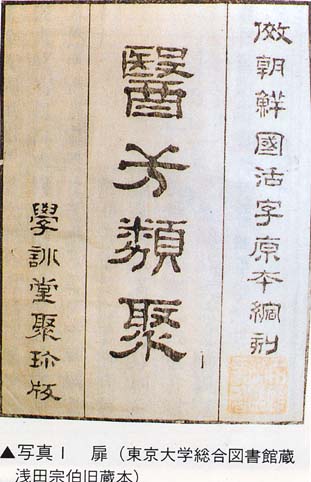 朝鮮國活字原本
醫方類聚
學訓堂聚珍版
▲写真1 扉(東京大学総合図書館蔵
浅田宗伯旧蔵本)